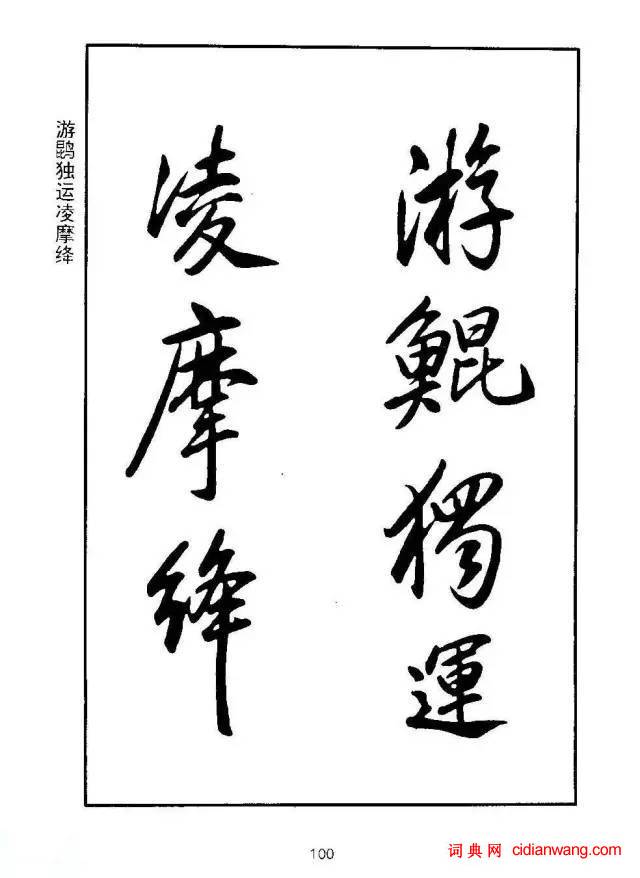 游鯤獨運
凌摩絳
游鹍独运凌摩绛
100
词典网 cidianwang.com